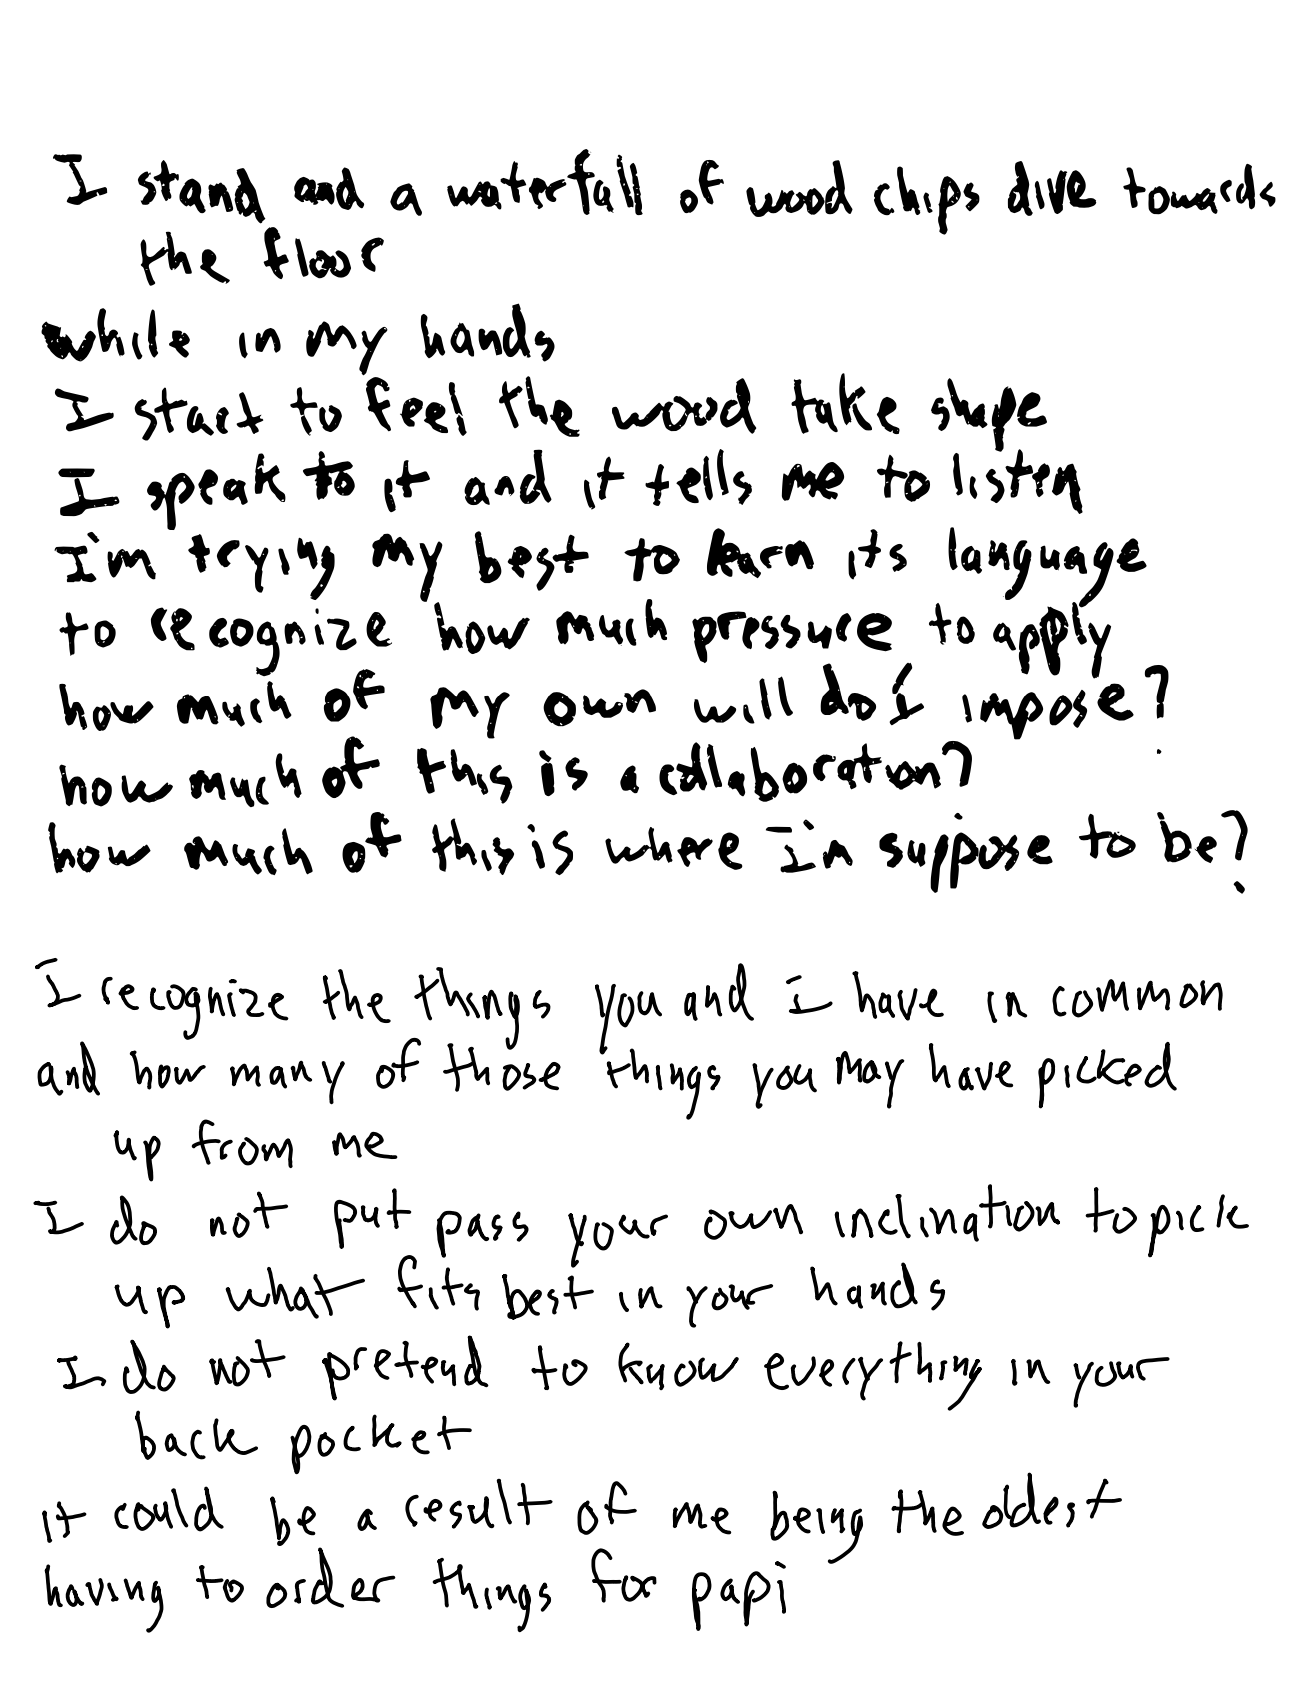 I stand and a waterfall of wood chips dive towards
the floor
while in my hands
I start to feel the wood take shape
I speak to it and it tells me to listen
I'm trying my best to learn its language
to recognize how much pressure to apply
how much of my own will do I impose?
how much of this is a collaboration?
how much of this is where I'm suppose to be?
I recognize the things you and i have in common
and how many of those things you may have picked
up from me
I do not put pass your own inclination to pick
up what fits best in your hands
I do not pretend to know everything in your
back pocket
it could be a result of me being the oldest
having to order things for papi